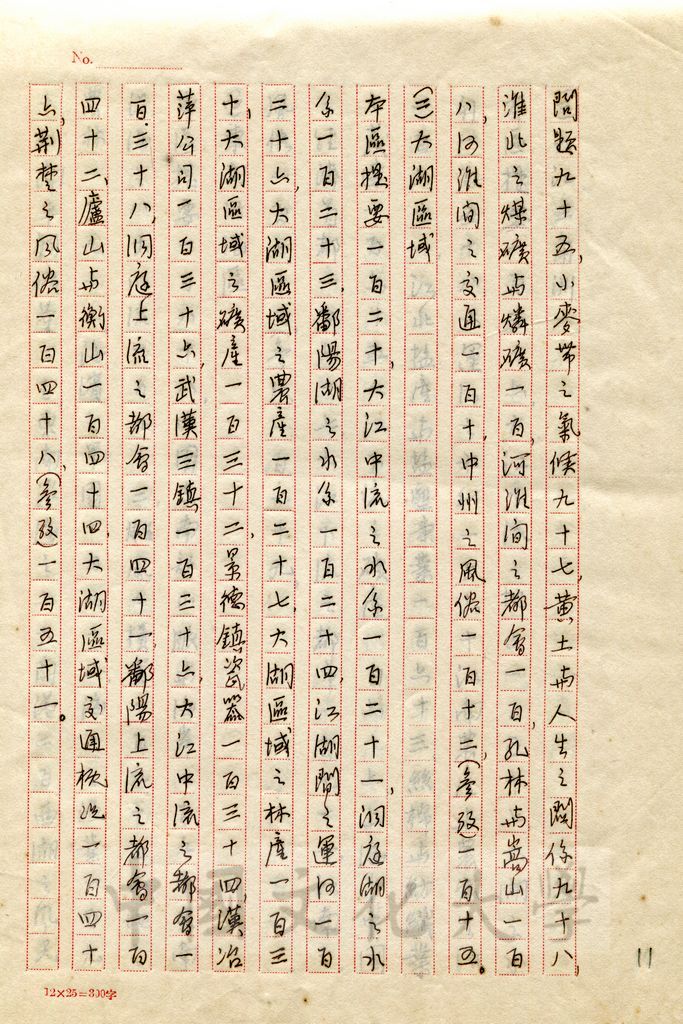 No.
問題九十五,小麥帶之氣候九十七,黄土與人生之關係九十八,
淮北之煤礦與燐礦一百,河淮间之都會一百,孔林與嵩山一百
八,河淮间之交通一百十,中州之風俗一百十二,(參攷)一百十五。
(三)大湖區域
本區提要一百二十,大江中流之水系一百二十一,洞庭湖之水
系一百二十三,鄱陽湖之水系一百二十四,江湖間之運河一百
二十六,大湖區域之農產一百二十七,大湖區域之林產一百三
十,大湖區域之礦產一百三十二,景德鎮瓷器一百三十四,漢冶
萍公司一百三十六,武漢三鎮一百三十六,大江中流之都會一
百三十八,洞庭上流之都會一百四十一,鄱陽上流之都會一百
四十二,廬山與衡山一百四十四,大湖區域交通概况一百四十
六,荆楚之風俗一百四十八,(參攷)一百五十一。
11
12×25=300字
中國文化大學